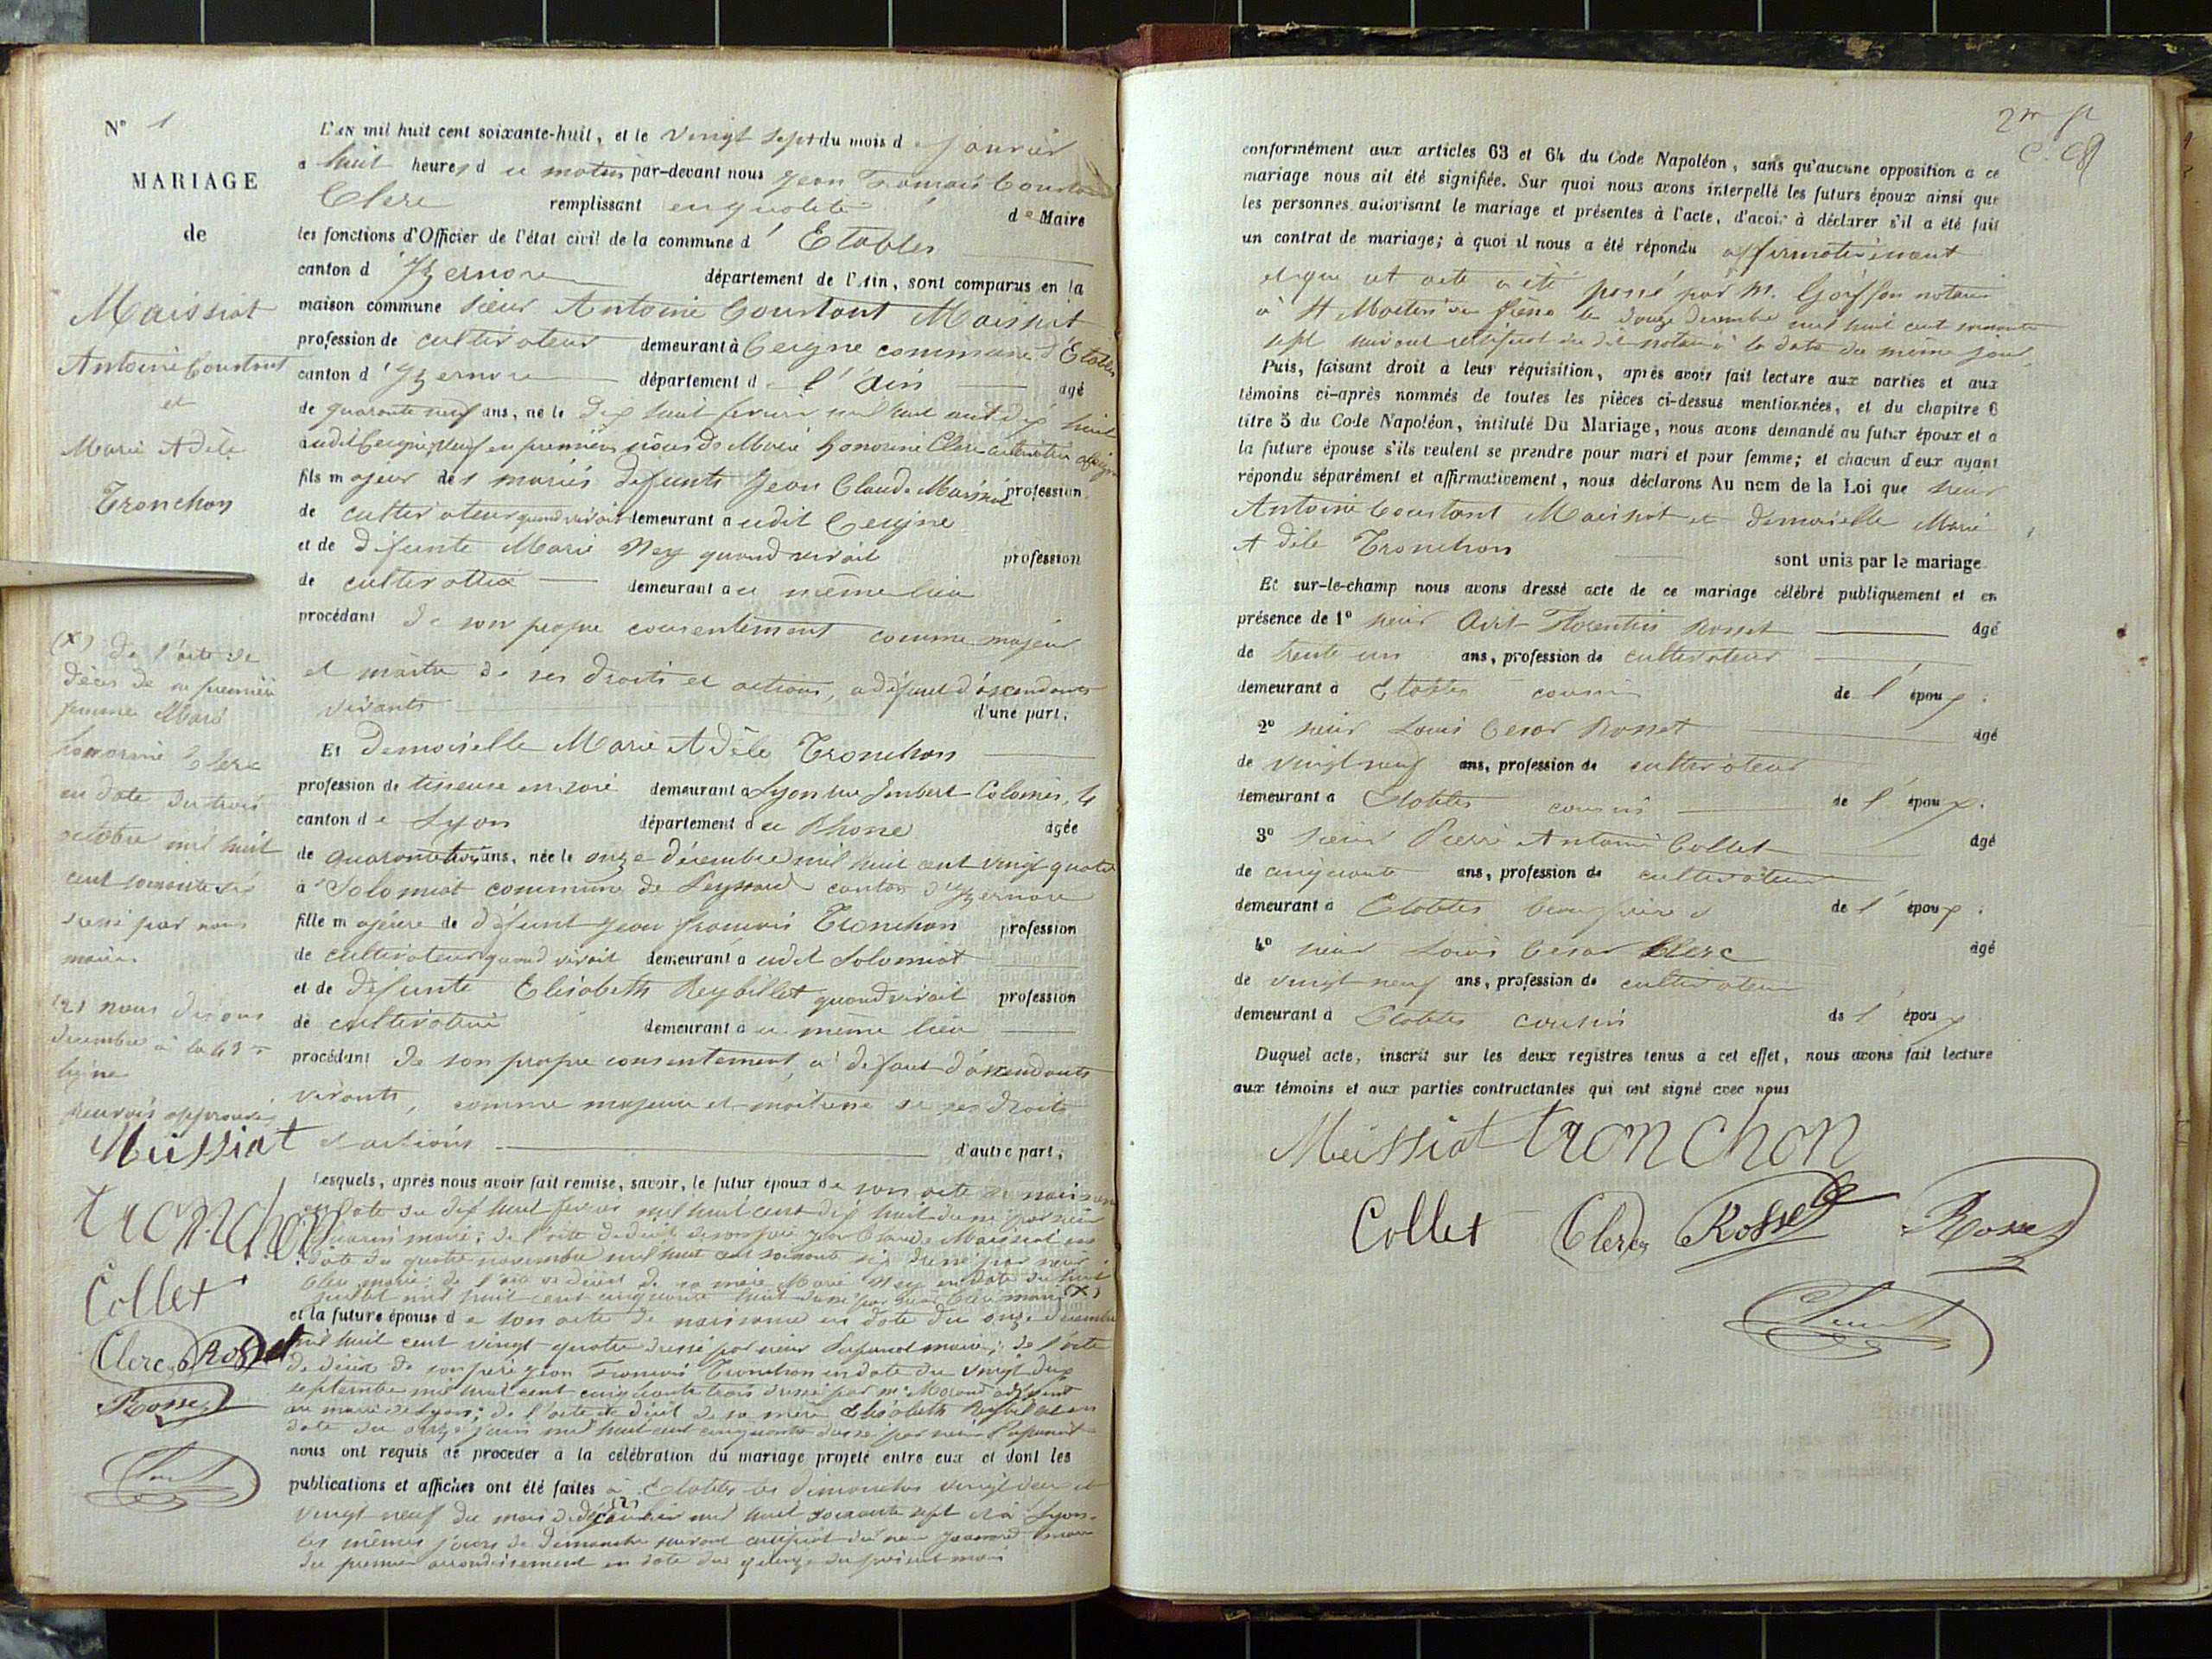 N° 1
MARIAGE
de
Maissiat
Antoine Constant
et
Marie Adèle
Tronchon
(x) de l'acte de
décès de sa première
femme Marie
honorine Clerc
en date du trois
octobre mil huit
cent soixante six
dressé par nous
maire
(2) nous disons
décembre à la 43e
ligne
Renvois approuvés
Meissiat
tronchon
Collet
Clerc Rosset
Rosset
L'AN mil huit cent soixante-huit, et le vingt sept du mois de janvier
à huit heures du matin par-devant nous Jean François Constant
Clerc remplissant en qualité de Maire
les fonctions d'Officier de l'état civil de la commune d'Etables
canton d'Izernore département de l'Ain, sont comparus en la
maison commune sieur Antoine Constant Maissiat
profession de cultivateur demeurant à Ceigne commune d'Etables
canton d'Izernore département de l'Ain âgé
de quarante neuf ans, né le dix huit fevrier mil huit cent dix huit
audit Ceigne, veuf en premières nôces de Marie honorine Clerc cultivatrice à Ceigne
fils majeur des mariés défunts Jean Claude Maissiat profession
de cultivateur quand vivait demeurant audit Ceigne
et de défunte Marie Ney quand vivait profession
de cultivatrice demeurant au même lieu
procédant de son propre consentement comme majeur
et maître de ses droits et actions, à défaut d'ascendants
vivants d'une part;
Et Demoiselle Marie Adèle Tronchon
profession de tisseuse en soie demeurant à Lyon rue Imbert-Colomès, 4
canton de Lyon département du Rhone âgée
de quarante trois ans, née le onze décembre mil huit cent vingt quatre
à Solomiat commune de Leyssard canton d'Izernore
fille majeure de défunt Jean françois Tronchon profession
de cultivateur quand vivait demeurant audit Solomiat
et de défunte Elisabeth Reybillet quand vivait profession
de cultivatrice demeurant au même lieu
procédant de son propre consentement, à défaut d'ascendants
vivants, comme majeure et maitresse de ses droits
et actions d'autre part;
Lesquels, après nous avoir fait remise, savoir, le futur époux de son acte de naissance
en date du dix huit fevrier mil huit cent dix huit dressé par sieur
maire; de l'acte de décès de son père Jean Claude Maissiat en
date du quatre novembre mil huit cent soixante six dressé par sieur
Clerc maire; de l'acte de décès de sa mère Marie Ney en date du huit
juillet mil huit cent cinquante huit dressé par sieur Clerc maire (x)
et la future épouse de son acte de naissance en date du onze décembre
mil huit cent vingt-quatre dressé par sieur maire; de l'acte
de décès de son père Jean François Tronchon en date du vingt deux
septembre mil huit cent cinquante trois dressé par Mr Morand adjoint
au maire de Lyon; de l'acte de décès de sa mère Elisabeth Reybillet en
date du onze juin mil huit cent cinquante dressé par sieur
nous ont requis de procéder à la célébration du mariage projeté entre eux et dont les
publications et affiches ont été faites à Etables les dimanches vingt deux et
vingt neuf du mois de décembre (2) mil huit soixante sept et à Lyon
les mêmes jours de Dimanche suivant certificat du maire
du premier arrondissement en date du quinze du présent mois
conformément aux articles 63 et 64 du Code Napoléon, sans qu'aucune opposition à ce
mariage nous ait été signifiée. Sur quoi nous avons interpellé les futurs époux ainsi que
les personnes autorisant le mariage et présentes à l'acte, d'avoir à déclarer s'il a été fait
un contrat de mariage; à quoi il nous a été répondu affirmativement
et que cet acte a été passé par M. Goiffon notaire
à St Martin du frêne le douze décembre mil huit cent soixante
sept suivant certificat du dit notaire à la date du même jour
Puis, faisant droit à leur réquisition, après avoir fait lecture aux parties et aux
témoins ci-après nommés de toutes les pièces ci-dessus mentionnées, et du chapitre 6
titre 5 du Code Napoléon, intitulé Du Mariage, nous avons demandé au futur époux et à
la future épouse s'ils veulent se prendre pour mari et pour femme; et chacun d'eux ayant
répondu séparément et affirmativement, nous déclarons Au nom de la Loi que sieur
Antoine Constant Maissiat et demoiselle Marie
Adèle Tronchon sont unis par le mariage
Et sur-le-champ nous avons dressé acte de ce mariage célébré publiquement et en
présence de 1° sieur Avit Florentin Rosset âgé
de trente un ans, profession de cultivateur
demeurant à Etables cousin de l'époux.
2° sieur Louis Cesar Rosset âgé
de vingt neuf ans, profession de cultivateur
demeurant à Etables cousin de l'époux.
3° sieur Pierre Antoine Collet âgé
de cinquante ans, profession de cultivateur
demeurant à Etables beaufrère de l'époux.
4° sieur Louis Cesar Clerc âgé
de vingt neuf ans, profession de cultivateur
demeurant à Etables cousin de l'époux
Duquel acte, inscrit sur les deux registres tenus à cet effet, nous avons fait lecture
aux témoins et aux parties contractantes qui ont signé avec nous
Meissiat tronchon
Collet Clerc Rosset Rosset